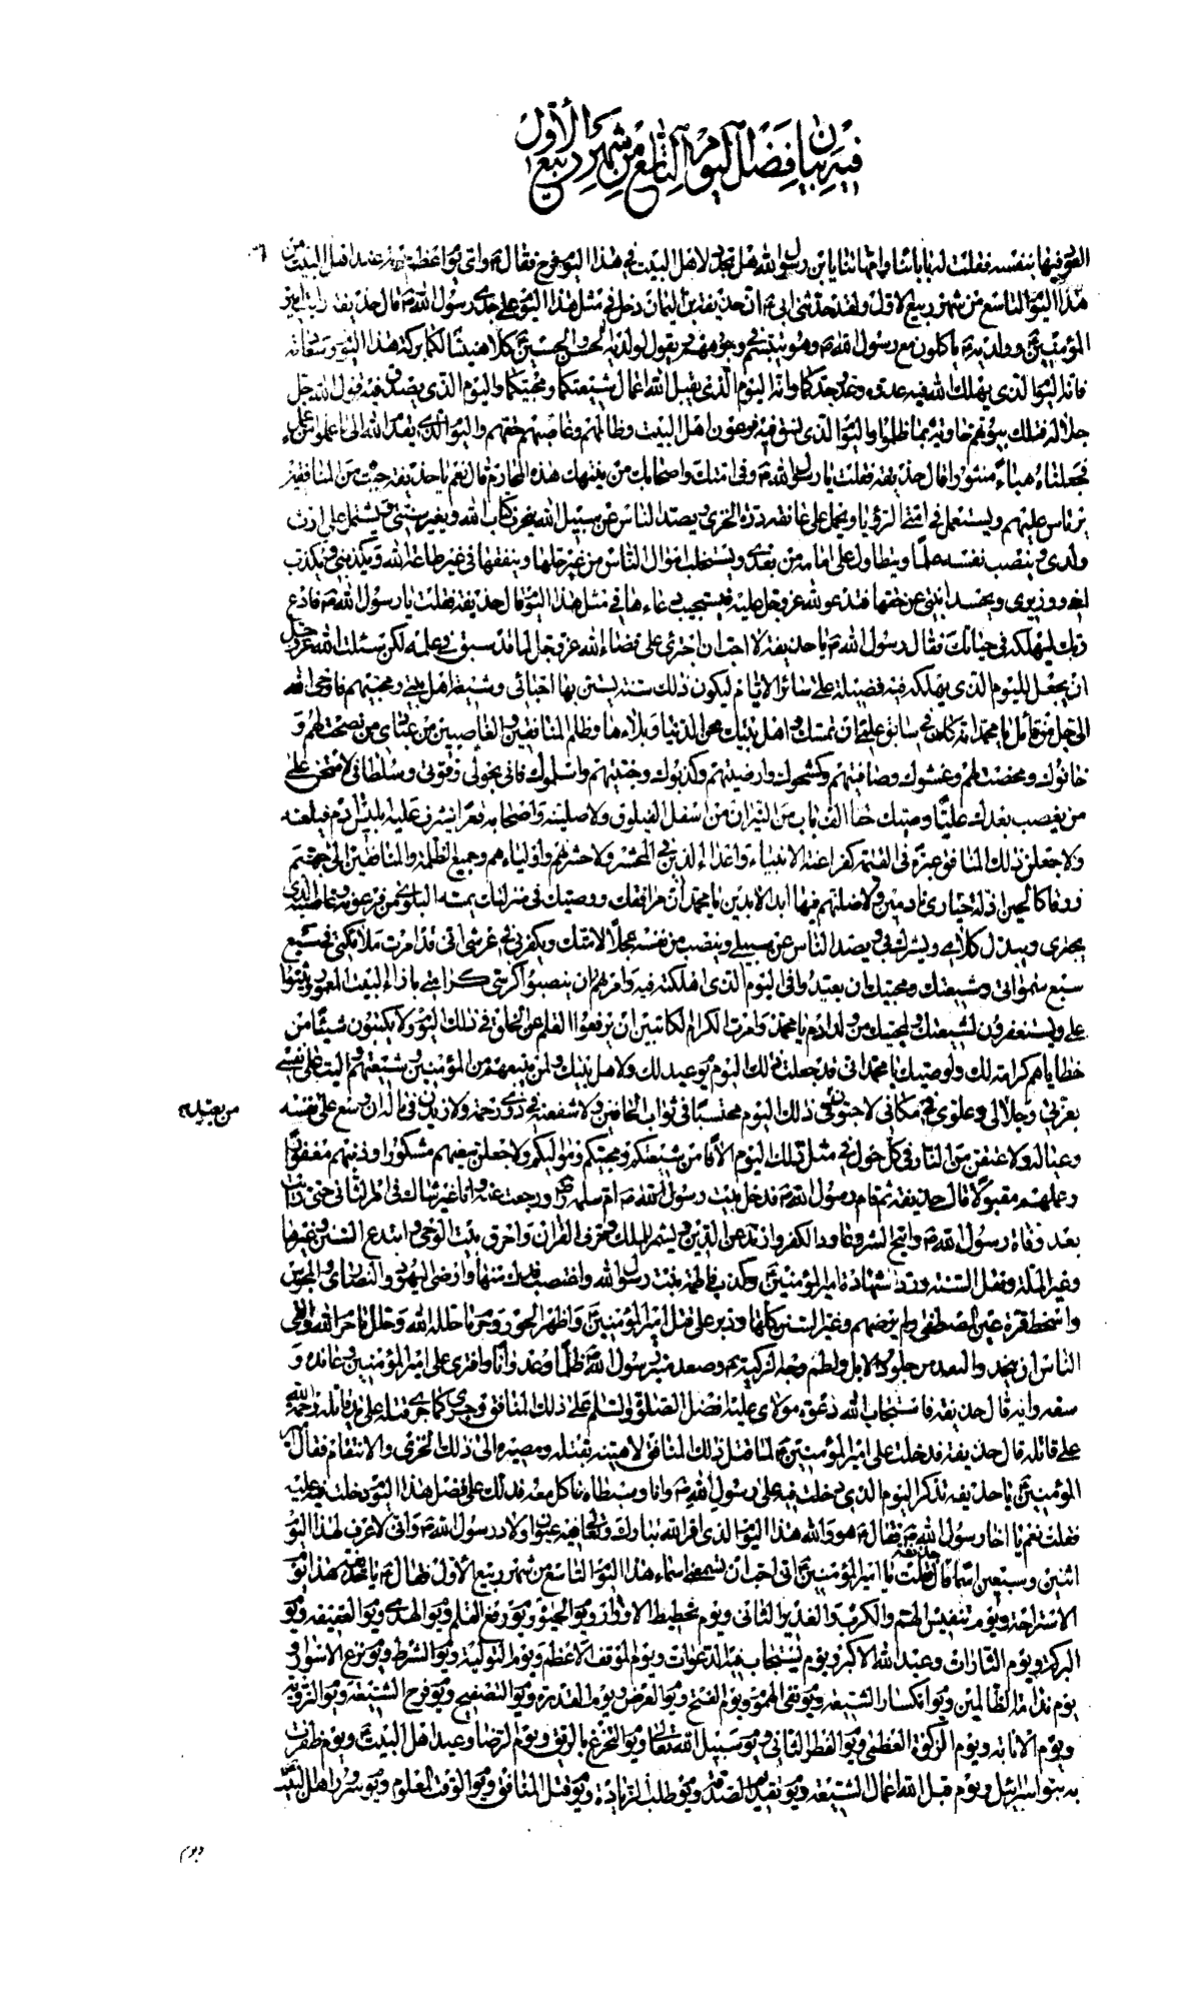 فيه بيان فضل اليوم التاسع من شهر ربيع الأول
بنفسه فقلت له بابائنا وامهاتنا يابن رسول الله هل تجدد لاهل البيت في هذا اليوم فرح فقال ع واي يوم اعظم حرمة عند اهل البيت من
هذا اليوم التاسع من شهر ربيع الاول ولقد حدثني ابي ع ان حذيفة بن اليمان دخل في مثل هذا اليوم على جدي رسول الله ص قال حذيفة رايت امير
المؤمنين ع وولديه ع ياكلون مع رسول الله ص وهو يتبسم في وجوههم ع يقول لولديه الحسن والحسين ع كلا هنيئا لكما بركة هذا اليوم وسعادته
فانه اليوم الذي يهلك الله فيه عدوه وعدو جدكما وانه اليوم الذي يقبل الله اعمال شيعتكما ومحبيكما واليوم الذي يصدق فيه قول الله جل
جلاله فتلك بيوتهم خاوية بما ظلموا واليوم الذي نسف فيه فرعون اهل البيت وظالمهم وغاصبهم حقهم واليوم الذي يقدم الله الى ما عملوا من عمل
فجعلناه هباء منثورا قال حذيفة فقلت يا رسول الله ص وفي امتك واصحابك من ينتهك هذه المحارم قال نعم يا حذيفة جبت من المنافقين
يرتاس عليهم ويستعمل في امتي الرؤيا ويحمل على عاتقه درة الخزي ويصد الناس عن سبيل الله يحرف كتاب الله ويغير سنتي ويشتمل على ارث
ولدي وينصب نفسه علما ويتطاول على امامه من بعدي ويستحل اموال الناس من غير حلها وينفقها في غير طاعة الله ويكذبني ويكذب
اخي ووزيري ويحسد ابنتي عن حقها فتدعو الله عز وجل عليه فيستجيب دعاءها في مثل هذا اليوم قال حذيفة فقلت يا رسول الله ص فادع
ربك ليهلكه في حياتك فقال رسول الله ص يا حذيفة لا احب ان اجترئ على قضاء الله عز وجل لما قد سبق في علمه لكن سئلت الله عز وجل
ان يجعل لليوم الذي يهلكه فيه فضيلة على سائر الايام ليكون ذلك سنة يستن بها احبائي وشيعة اهل بيتي ومحبيهم فاوحى الله
الي جل من قائل يا محمد انه كان في سابق علمي ان تمسك واهل بيتك محن الدنيا وبلاءها وظلم المنافقين والغاصبين من عبادي من نصحت لهم و
خانوك ومحضت لهم وغشوك وصافيتهم وكشحوك وارضيتهم وكذبوك وجنبتهم واسلموك فاني بحولي وقوتي وسلطاني لافتحن على
من يغصب بعدك عليا وصيك حقا الف باب من النيران من اسفل الفيلوق ولاصلينه واصحابه قعرا يشرف عليه ابليس ادم فيلعنه
ولاجعلن ذلك المنافق عبرة في القيمة كفراعنة الانبياء واعداء الدين في المحشر ولاحشرنهم واولياءهم وجميع الظلمة والمنافقين الى جهنم
زرقا كالحين اذلة حيارى نادمين ولاضلنهم فيها ابد الابدين يا محمد ان مرافقك ووصيك في منزلتك يمسه البلوى من فرعونه وغاصبه الذي
يجتري ويبدل كلامي ويشرك بي ويصد الناس عن سبيلي وينصب من نفسه عجلا لامتك ويكفر بي في عرشي اني قد امرت ملائكتي في سبع
سمواتي وشيعتك ومحبيك ان يعيدوا في اليوم الذي اهلكته فيه وامرتهم ان ينصبوا كرسي كرامتي بازاء البيت المعمور ويثنوا
علي ويستغفرون لشيعتك ولمحبيك من ولد ادم يا محمد وامرت الكرام الكاتبين ان يرفعوا القلم عن الخلق في ذلك اليوم ولا يكتبون شيئا من
خطاياهم كرامة لك ولوصيك يا محمد اني قد جعلت ذلك اليوم يوم عيد لك ولاهل بيتك ولمن يتبعهم من المؤمنين وشيعتهم واليت على نفسي
بعزتي وجلالي وعلوي في مكاني لاحبون في ذلك اليوم محتسبا في ثواب الحافين ولاشفعنه في ذوي رحمه ولازيدن في ماله ان وسع على نفسه
وعياله ولاعتقن من النار في كل حول في مثل ذلك اليوم الافا من شيعتكم ومحبيكم ومواليكم ولاجعلن سعيهم مشكورا وذنبهم مغفورا
وعملهم مقبولا قال حذيفة ثم قام رسول الله ص فدخل بيت رسول الله ص ام سلمة رض ورجعت عنه وانا غير شاك في امر الثاني حتى رايت
بعد وفاة رسول الله ص واتيح الشر وعاود الكفر وارتد عن الدين وشمر للملك وحرف القران واحرق بيت الوحي وابتدع السنن وغيرها
وغير الملة ونقل السنة ورد شهادة امير المؤمنين ع وكذب فاطمة بنت رسول الله واغتصب فدك منها وارضى اليهود والنصارى والمجوس
واسخط قرة عين المصطفى ولم يرضهم وغير السنن كلها ودبر على قتل امير المؤمنين ع واظهر الجور وحرم ما حلله الله وحلل ما حرم الله والقى
الناس ان يتخذوا النقد من جلود الابل ولطم وجه الزكية ع وصعد منبر رسول الله ص ظلما وعدوانا وافترى على امير المؤمنين وعانده و
سفه رايه قال حذيفة فاستجاب الله دعوة مولاي عليه افضل الصلوة والسلم على ذلك المنافق وجرى كما جرى قتله على يد قاتله رحمة الله
على قاتله قال حذيفة فدخلت على امير المؤمنين ع لما قتل ذلك المنافق لاهنيه بقتله ومصيره الى ذلك الخزي والانتقام فقال امير
المؤمنين ع يا حذيفة تذكر اليوم الذي دخلت فيه على رسول الله ص وانا وسبطاه ناكل معه فدلك على فضل هذا اليوم دخلت فيه عليه
فقلت نعم يا اخا رسول الله ص فقال ع هو والله هذا اليوم الذي اقر الله تبارك وتعالى فيه عيون اولاد رسول الله ص واني لاعرف لهذا اليوم
اثنين وسبعين اسما قال حذيفة فقلت يا امير المؤمنين ع اني احب ان تسمعني اسماء هذا اليوم التاسع من شهر ربيع الأول فقال ع يا حذيفة هذا يوم
الاستراحة ويوم تنفيس الهم والكرب والغدير الثاني ويوم تحطيط الاوزار ويوم الحبوة ويوم رفع القلم ويوم الهدى ويوم العقيقة ويوم
البركة ويوم الثارات وعيد الله الاكبر ويوم يستجاب فيه الدعوات ويوم الموقف الاعظم ويوم التولية ويوم الشرط ويوم نزع الاسوار و
يوم ندامة الظالمين ويوم انكسار الشيعة ويوم نفي الهموم ويوم الفتح ويوم العرض ويوم القدرة ويوم التصفيح ويوم فرح الشيعة ويوم التروية
ويوم الانابة ويوم الزكوة العظمى ويوم الفطر الثاني ويوم سبيل الله تعالى ويوم التجرع بالريق ويوم الرضا وعيد اهل البيت ع ويوم ظفرت
به بنو اسرائيل ويوم قبل الله اعمال الشيعة ويوم تقديم الصدقة ويوم طلب الزيادة ويوم قتل المنافق ويوم الوقت المعلوم ويوم سرور اهل البيت ع
ويوم